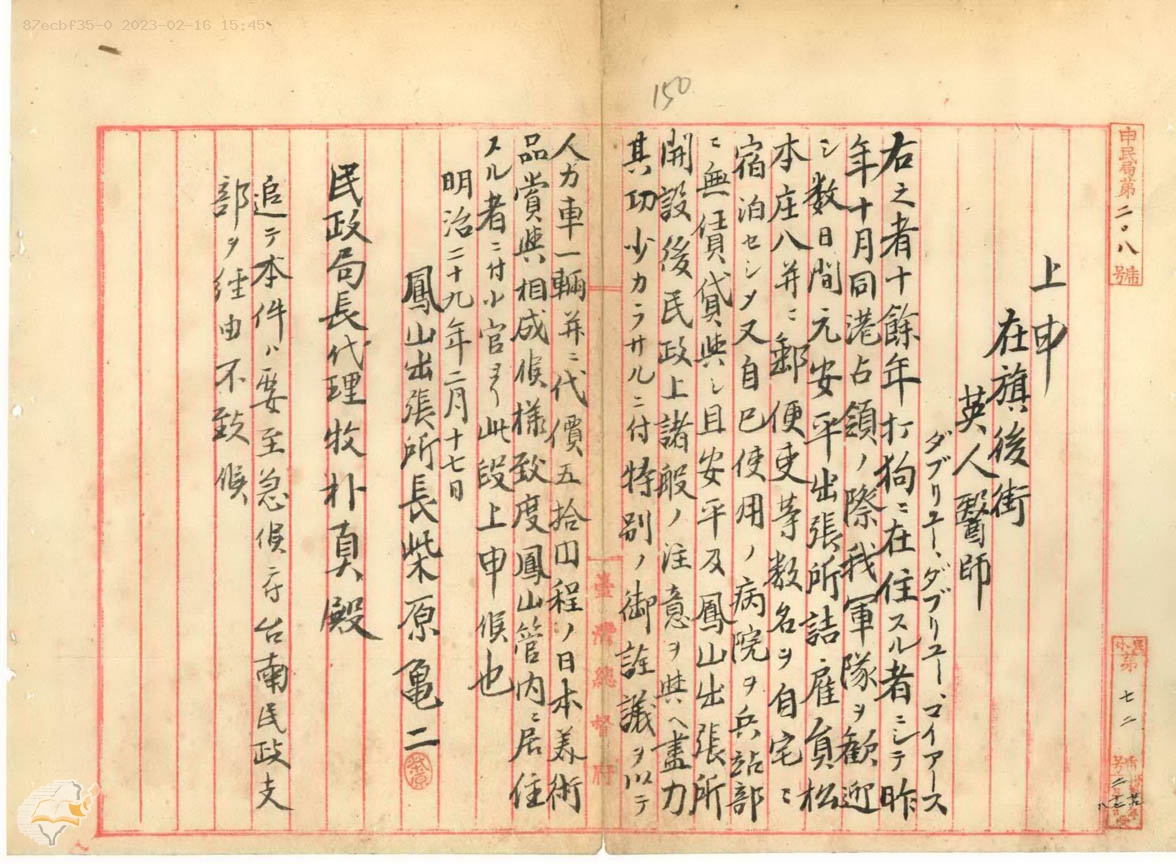 87ecbf35-0 2023-02-16 15:45
150
申民局第二〇八号
上申
在旗後街
英人醫師
ダブリユー、ダブリユー、マイアース
右之者十餘年打狗ニ在住スル者ニシテ昨
年十月同港占領ノ際我軍隊ヲ歓迎
シ数日間元安平出張所詰雇員松
本庄八并ニ郵便吏等数名ヲ自宅ニ
宿泊セシメ又自己使用ノ病院ヲ兵站部
ニ無賃貸與シ且安平及鳳山出張所
開設後民政上諸般ノ注意ヲ與ヘ盡力
其功少カラサルニ付特別ノ御詮議ヲ以テ
人力車一輛并ニ代價五拾円程ノ日本美術
品賞與相成候様致度鳳山管内ニ居住
スル者ニ付小官ヨリ此段上申候也
明治二十九年二月十七日
鳳山出張所長柴原亀二
民政局長代理牧朴真殿
追テ本件ハ要至急候ニ付台南民政支
部ヲ経由不致候
臺灣總督府
第七二